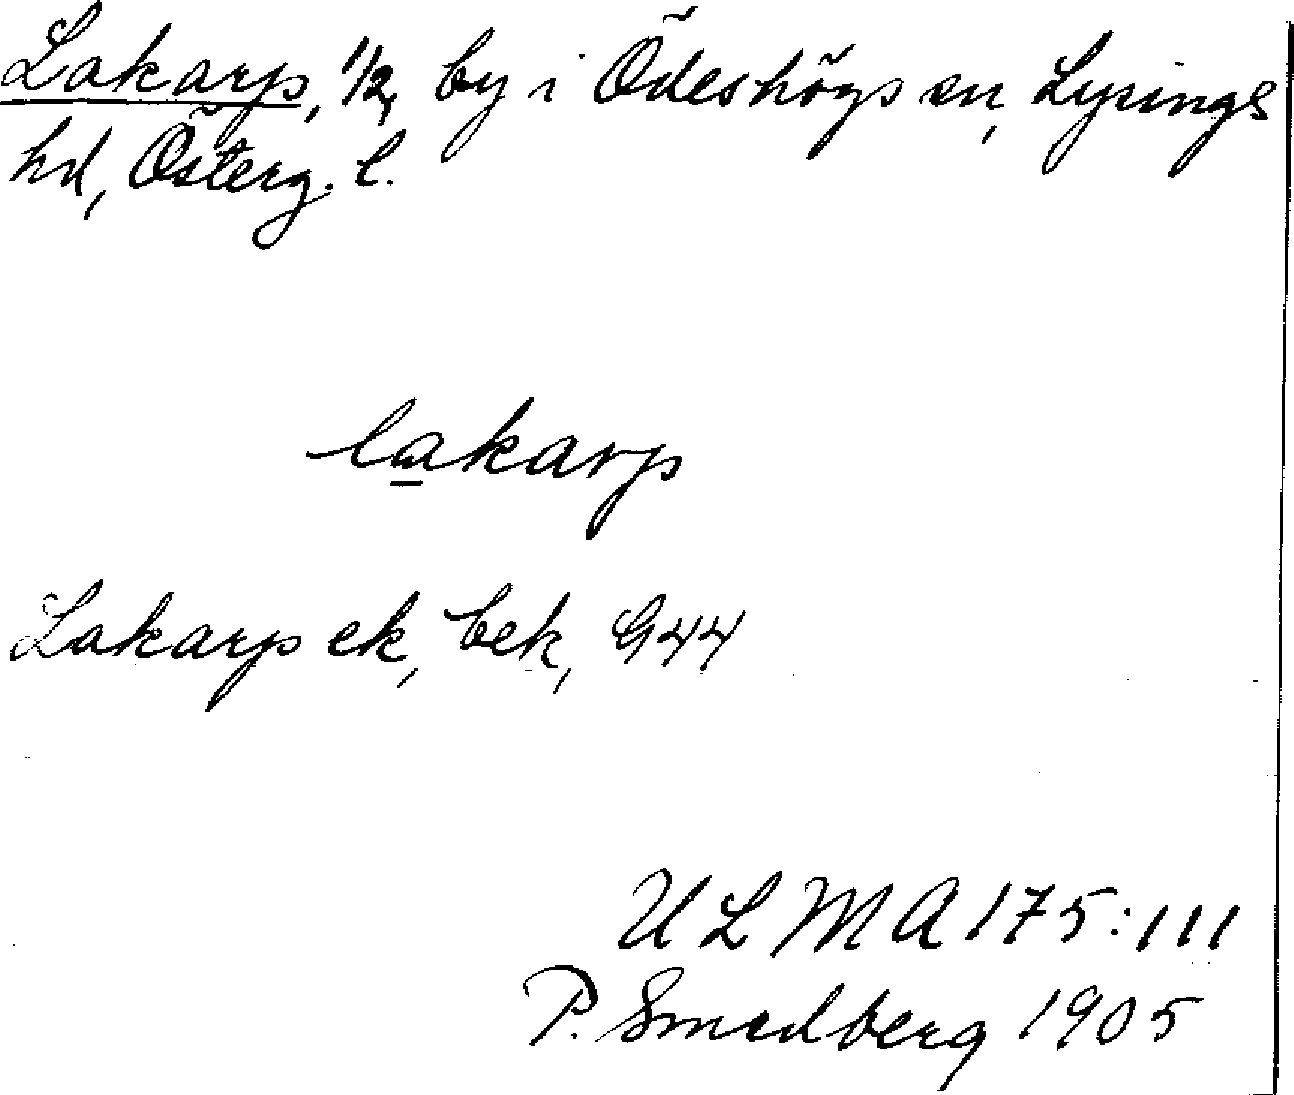 Lakarp, 1/2, by i Ödeshögs sn, Lysings
hd, Österg. l.
lakarp
Lakarp ek, bek, G44
ULMA 175:111
P. Smedberg 1905